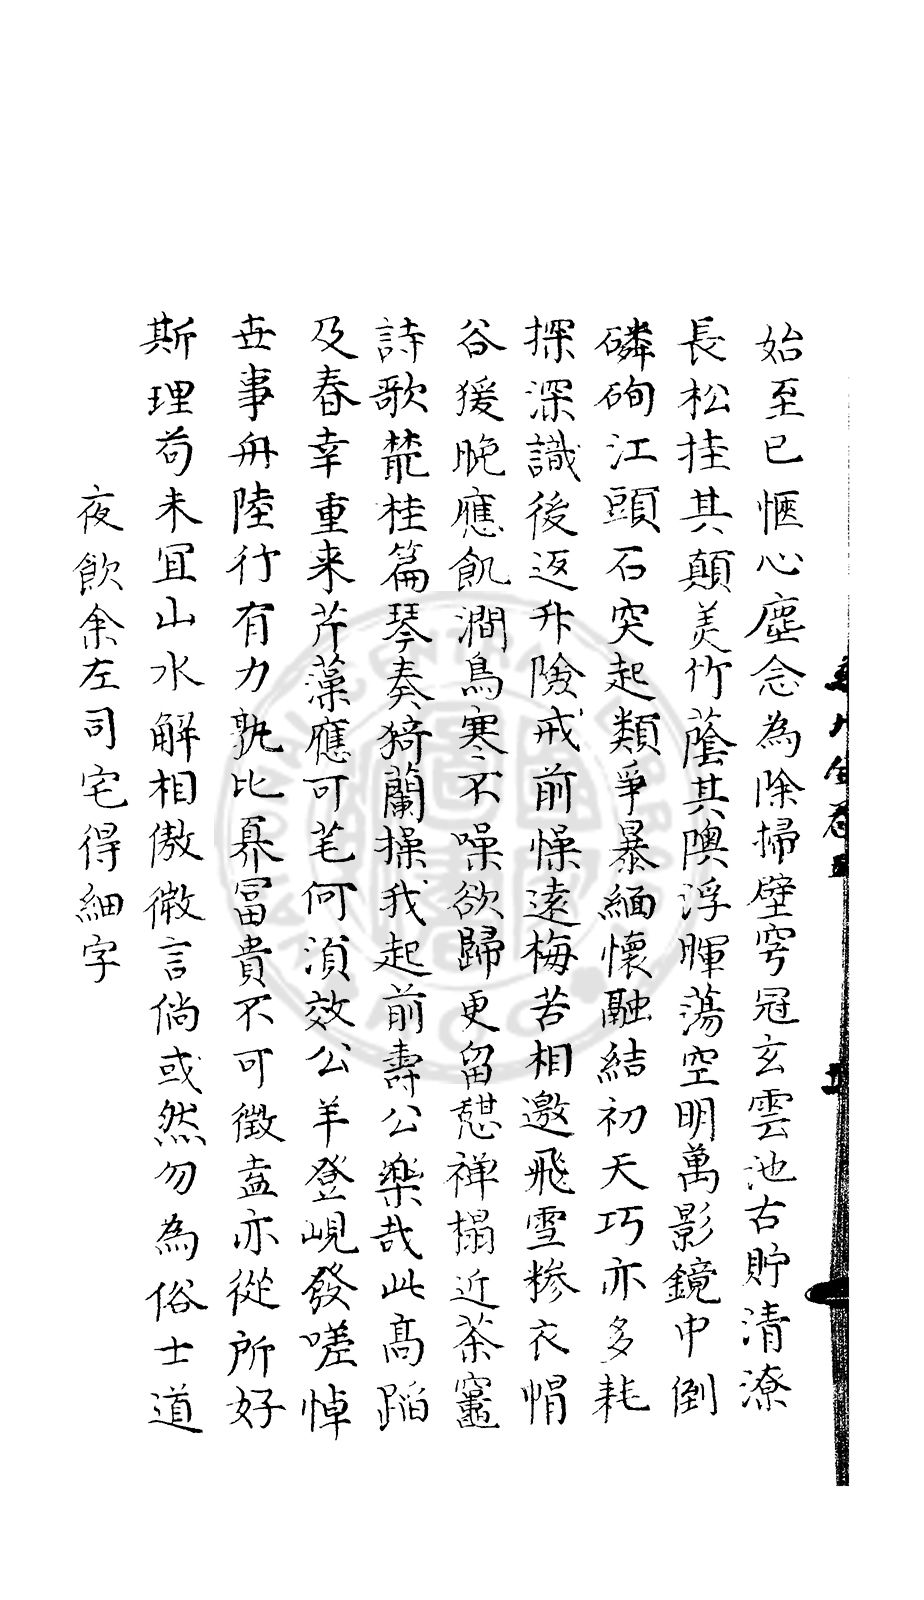 始至已愜心塵念為除掃壁穹冠玄雲池古貯清潦
長松挂其顛美竹蔭其隩浮暉蕩空明萬影鏡中倒
磷硇江頭石突起類爭暴緬懷融結初天巧亦多耗
探深識後返升險戒前懆遠梅若相邀飛雪糝衣帽
谷猨晚應飢澗鳥寒不噪欲歸更留憇禅榻近茶竈
詩歌叢桂篇琴奏猗蘭操我起前壽公樂哉此髙蹈
及春幸重来芹藻應可芼何湏效公羊登峴發嗟悼
丗事舟陸行有力孰比奡冨貴不可徵盍亦從所好
斯理苟未冝山水解相傲微言倘或然勿為俗士道
夜飲余左司宅得細字